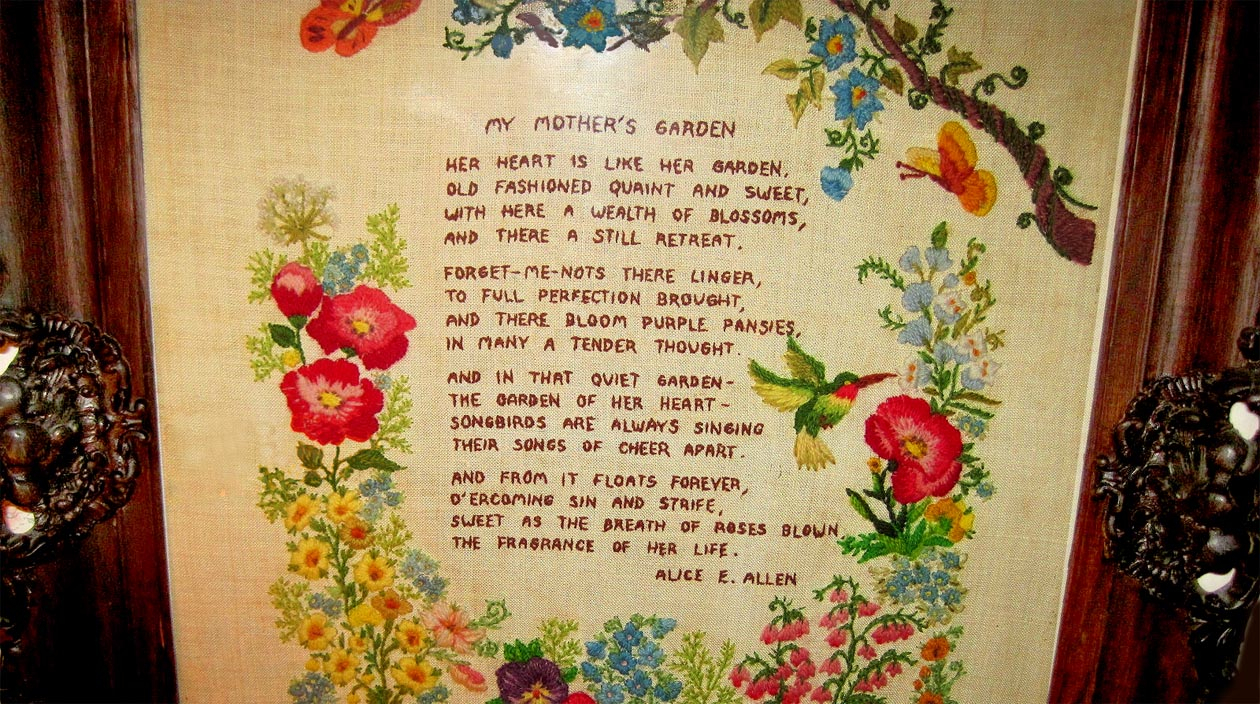 MY MOTHER'S GARDEN
HER HEART IS LIKE HER GARDEN,
OLD FASHIONED QUAINT AND SWEET,
WITH HERE A WEALTH OF BLOSSOMS,
AND THERE A STILL RETREAT.
FORGET-ME-NOTS THERE LINGER,
TO FULL PERFECTION BROUGHT,
AND THERE BLOOM PURPLE PANSIES,
IN MANY A TENDER THOUGHT.
AND IN THAT QUIET GARDEN-
THE GARDEN OF HER HEART-
SONGBIRDS ARE ALWAYS SINGING
THEIR SONGS OF CHEER APART.
AND FROM IT FLOATS FOREVER,
O'ERCOMING SIN AND STRIFE,
SWEET AS THE BREATH OF ROSES BLOWN
THE FRAGRANCE OF HER LIFE.
ALICE E. ALLEN